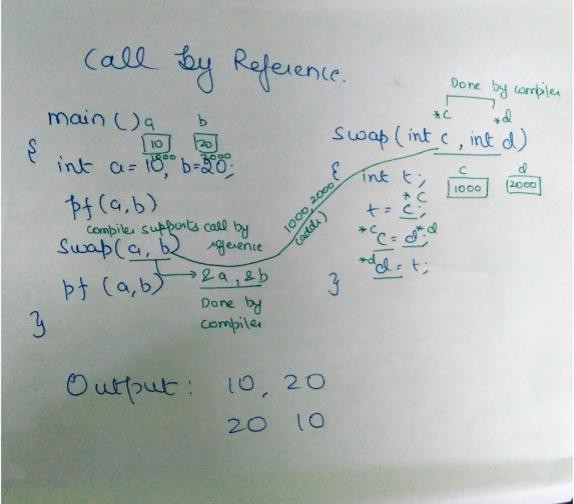 Call by Reference.
main()
a b
10 20
1000 2000
{
int a=10, b=20;
pf(a,b)
compiler supports call by
reference
Swap(a, b)
&a, &b
pf (a,b)
Done by
compiler
}
1000, 2000
(addr)
Done by compiler
*c *d
swap(int c, int d)
{ int t;
c d
1000 2000
*c
t = c;
*c c = d *d
*d d = t;
}
Output: 10, 20
20 10